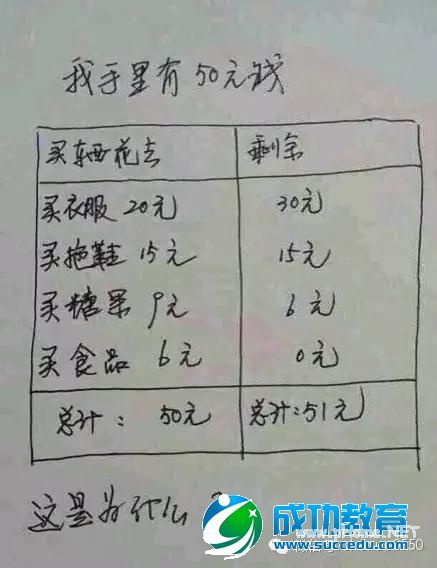 我手里有50元钱
买东西花去 剩余
买衣服 20元 30元
买拖鞋 15元 15元
买糖果 9元 6元
买食品 6元 0元
总计: 50元 总计:51元
这是为什么?
成功教育
www.succedu.com